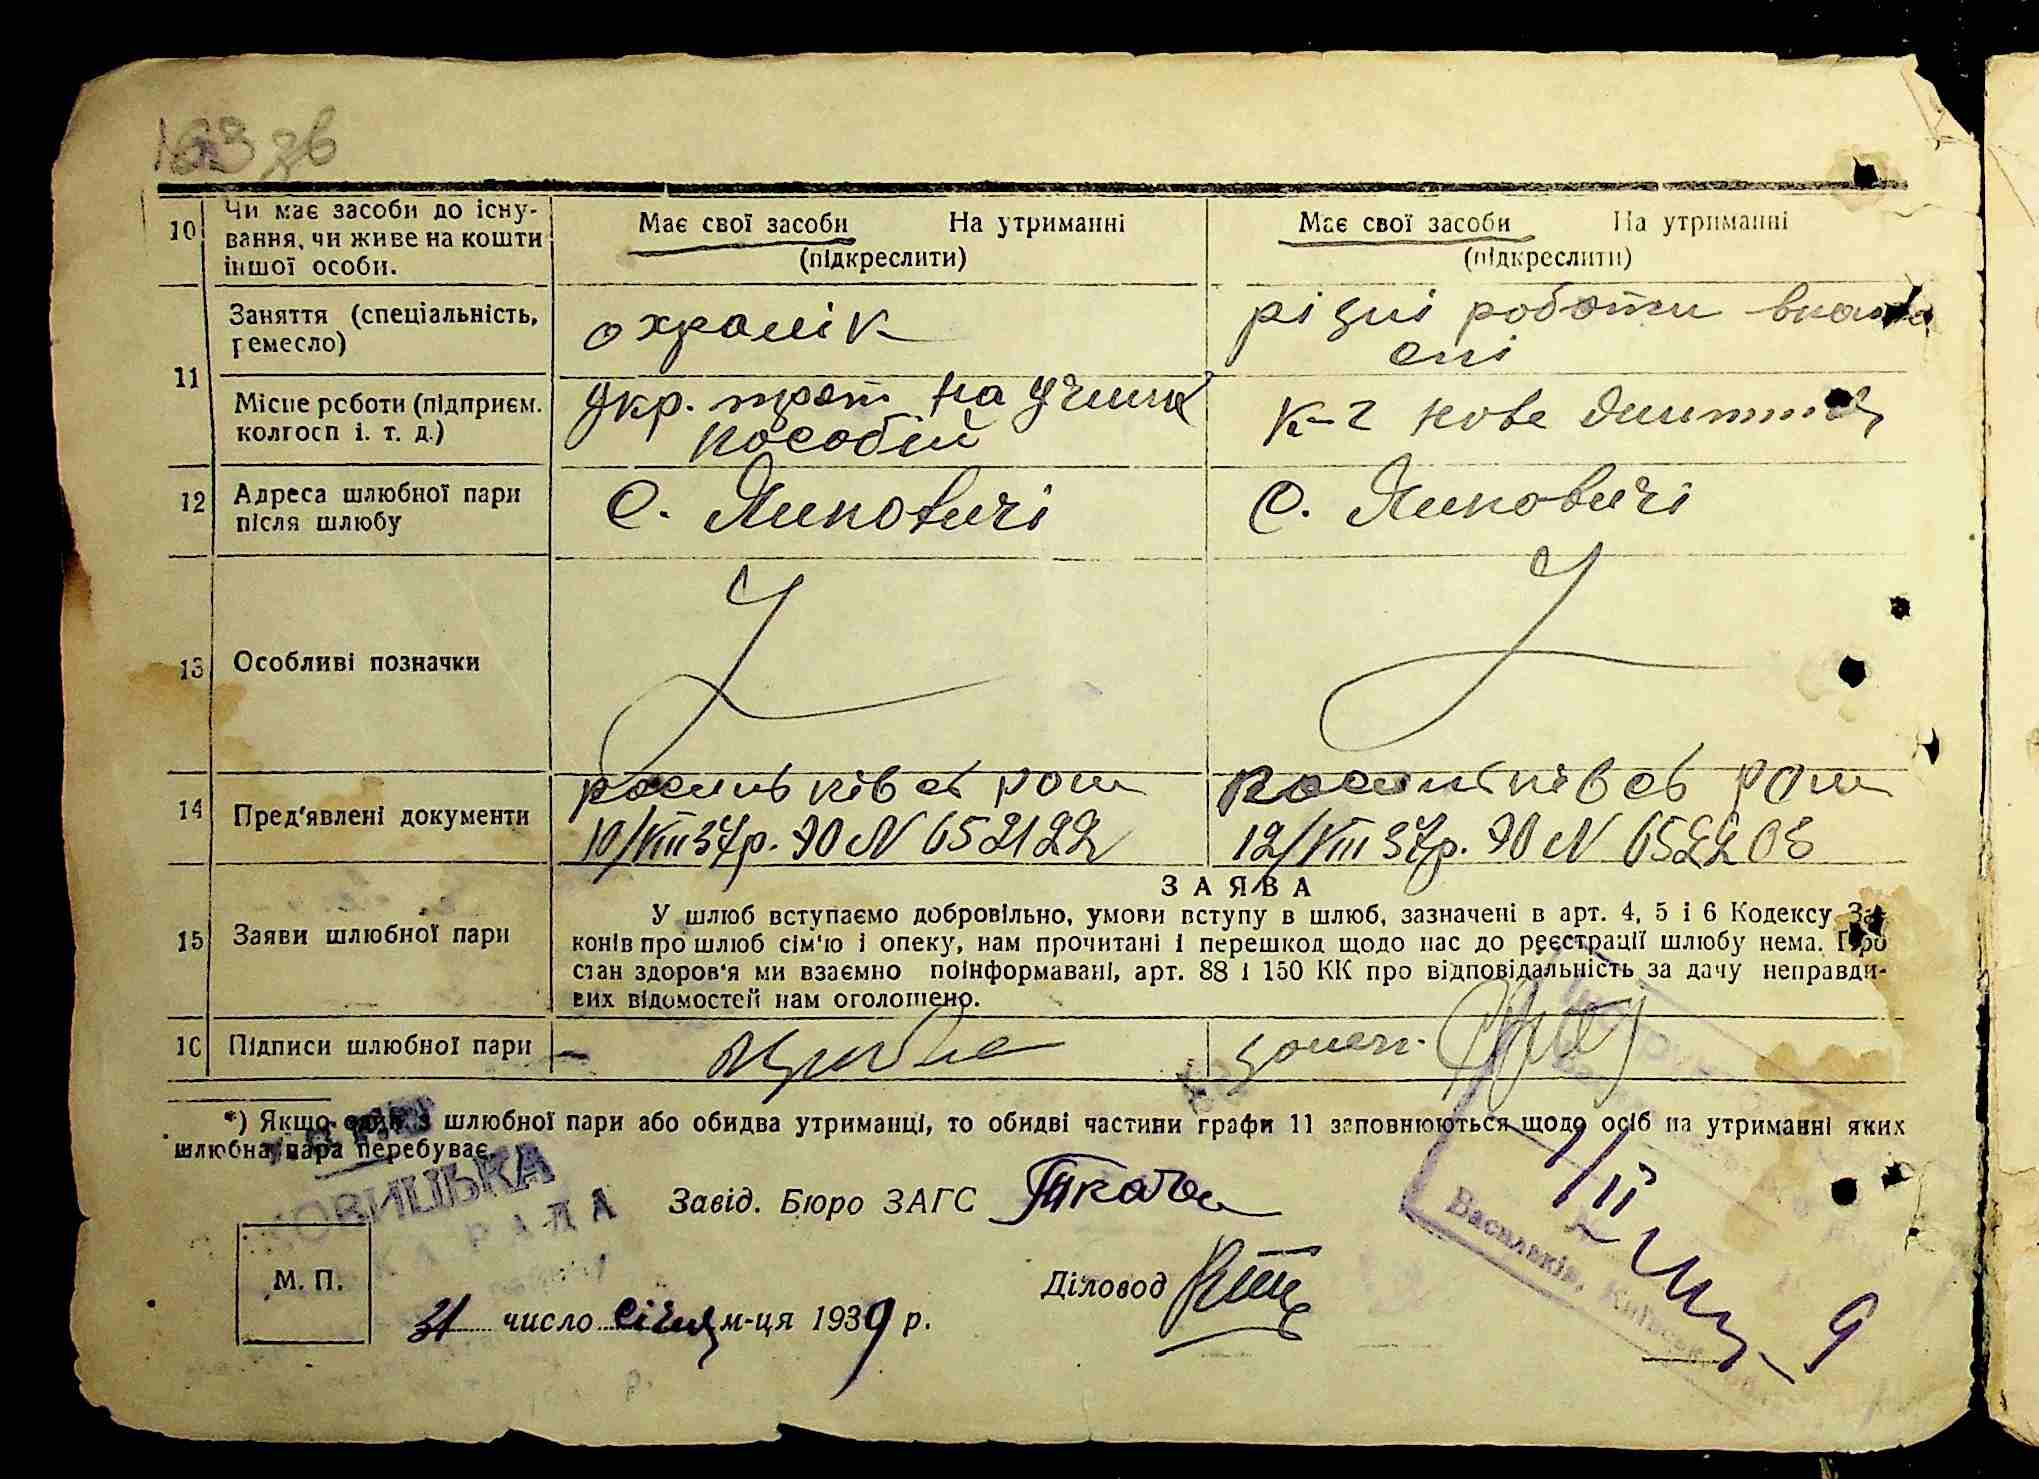 63 зв
10 Чи має засоби до існу-
вання, чи живе на кошти
іншої особи.
Має свої засоби На утриманні
(підкреслити)
Має свої засоби На утриманні
(підкреслити)
11 Заняття (спеціальність,
ремесло)
охранік
різні роботи
Місце роботи (підприєм.
колгосп і. т. д.)
Укр. трест на
пособій
к-г нове
12 Адреса шлюбної пари
після шлюбу
с. Липовичі
с. Липовичі
13 Особливі позначки
14 Пред'явлені документи
10/VIII 37р. ЯО № 652122
12/VIII 37р. ЯО № 652203
15 Заяви шлюбної пари
ЗАЯВА
У шлюб вступаємо добровільно, умови вступу в шлюб, зазначені в арт. 4, 5 і 6 Кодексу За-
конів про шлюб сім'ю і опеку, нам прочитані і перешкод щодо нас до реєстрації шлюбу нема. Про
стан здоров'я ми взаємно поінформавані, арт. 88 і 150 КК про відповідальність за дачу неправди-
вих відомостей нам оголошено.
16 Підписи шлюбної пари
*) Якщо один з шлюбної пари або обидва утриманці, то обидві частини графи 11 заповнюються щодо осіб на утриманні яких
шлюбна пара перебуває.
ОВИЦЬКА
РАДА
Завід. Бюро ЗАГС Ткач
М. П.
Діловод
31 число січня м-ця 1939 р.
Васильків, Київськ
9